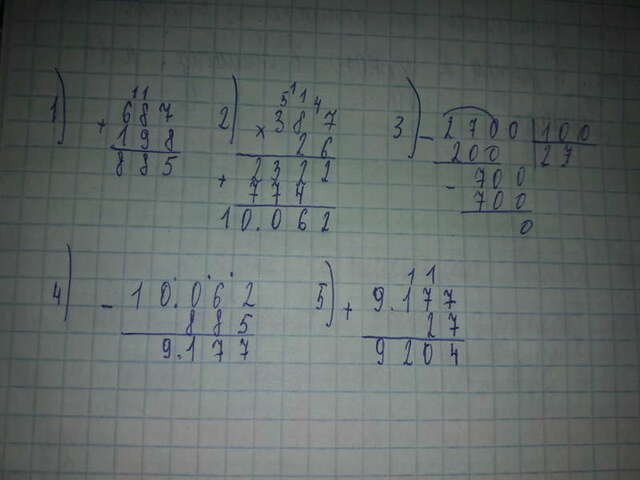 1) 11
+ 687
198
885
2) 5 1 1 4
× 387
26
+ 2322
774
10.062
3) - 2700 | 100
200 27
- 700
700
0
4) - 10.062
885
9.177
5) 11
+ 9.177
27
9204